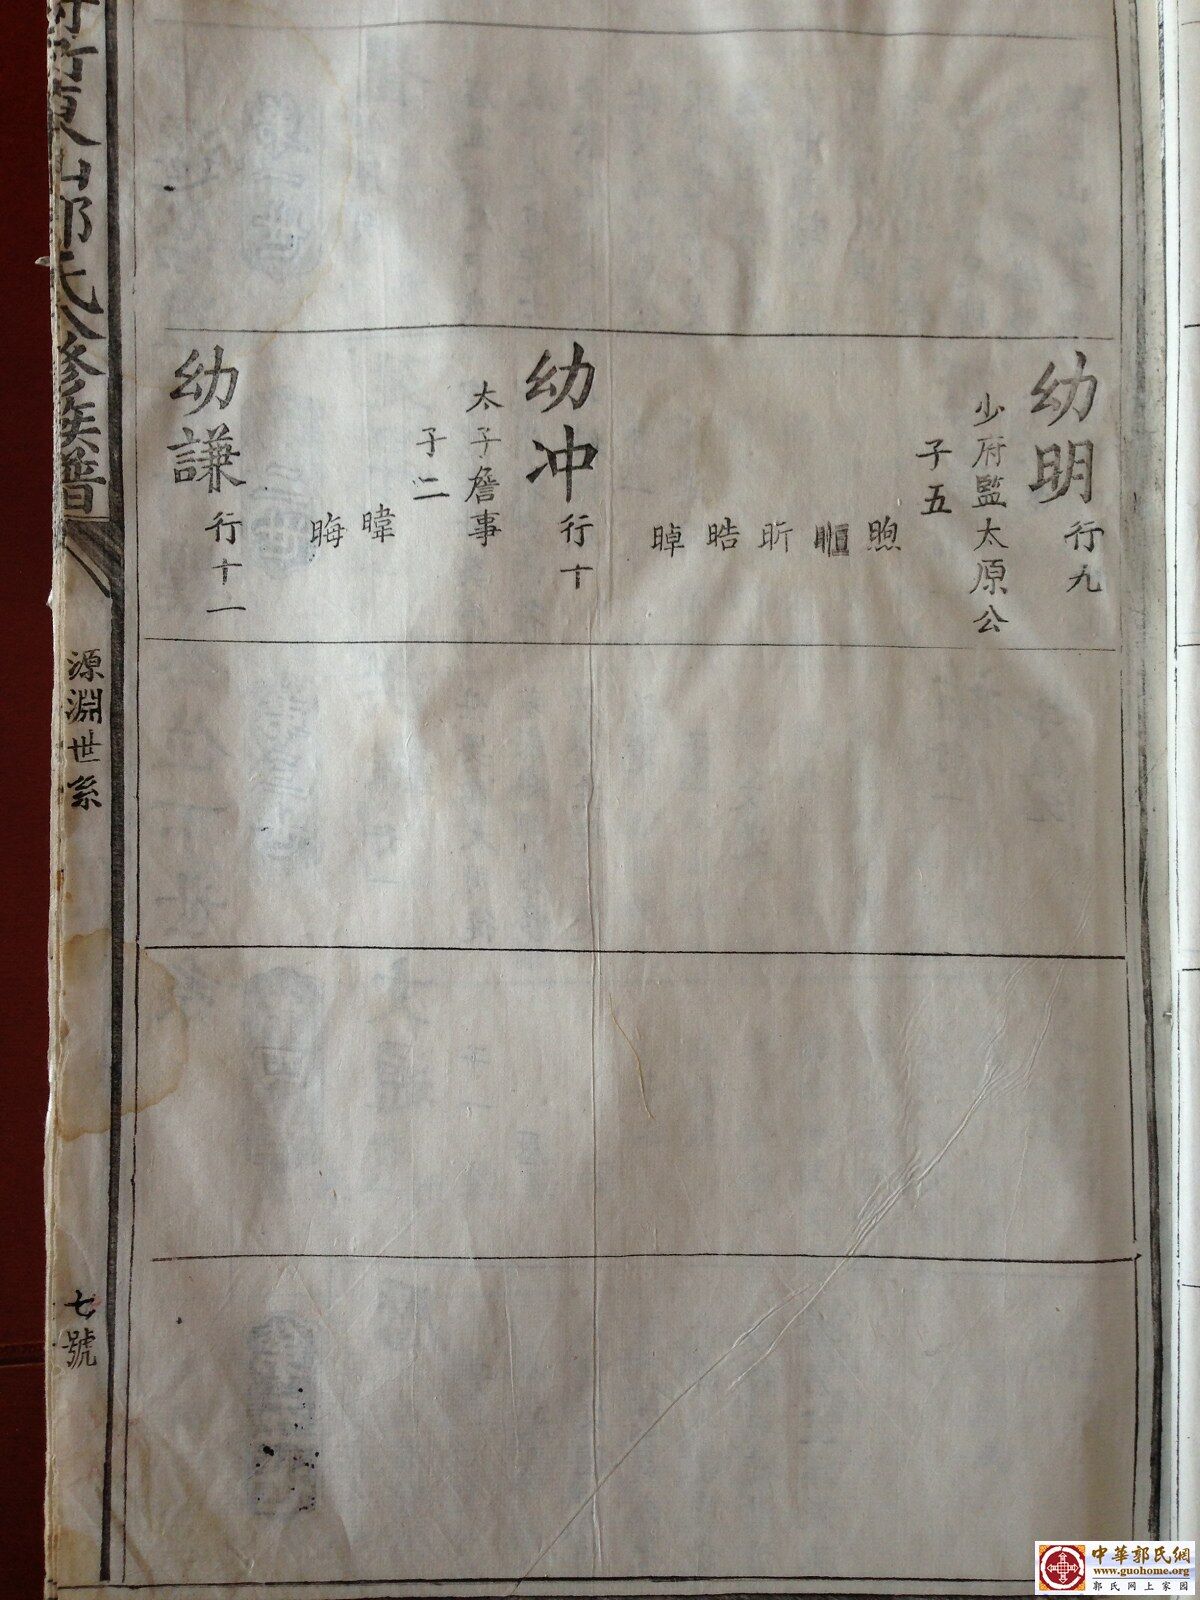 幼明行九
少府監太原公
子五
煦
昕
晧
晫
幼冲行十
太子詹事
子二
暐
晦
幼謙行十一
東山郭氏八修族譜
源淵世系
七號
中華郭氏網
www.guohome.org
郭氏网上家园